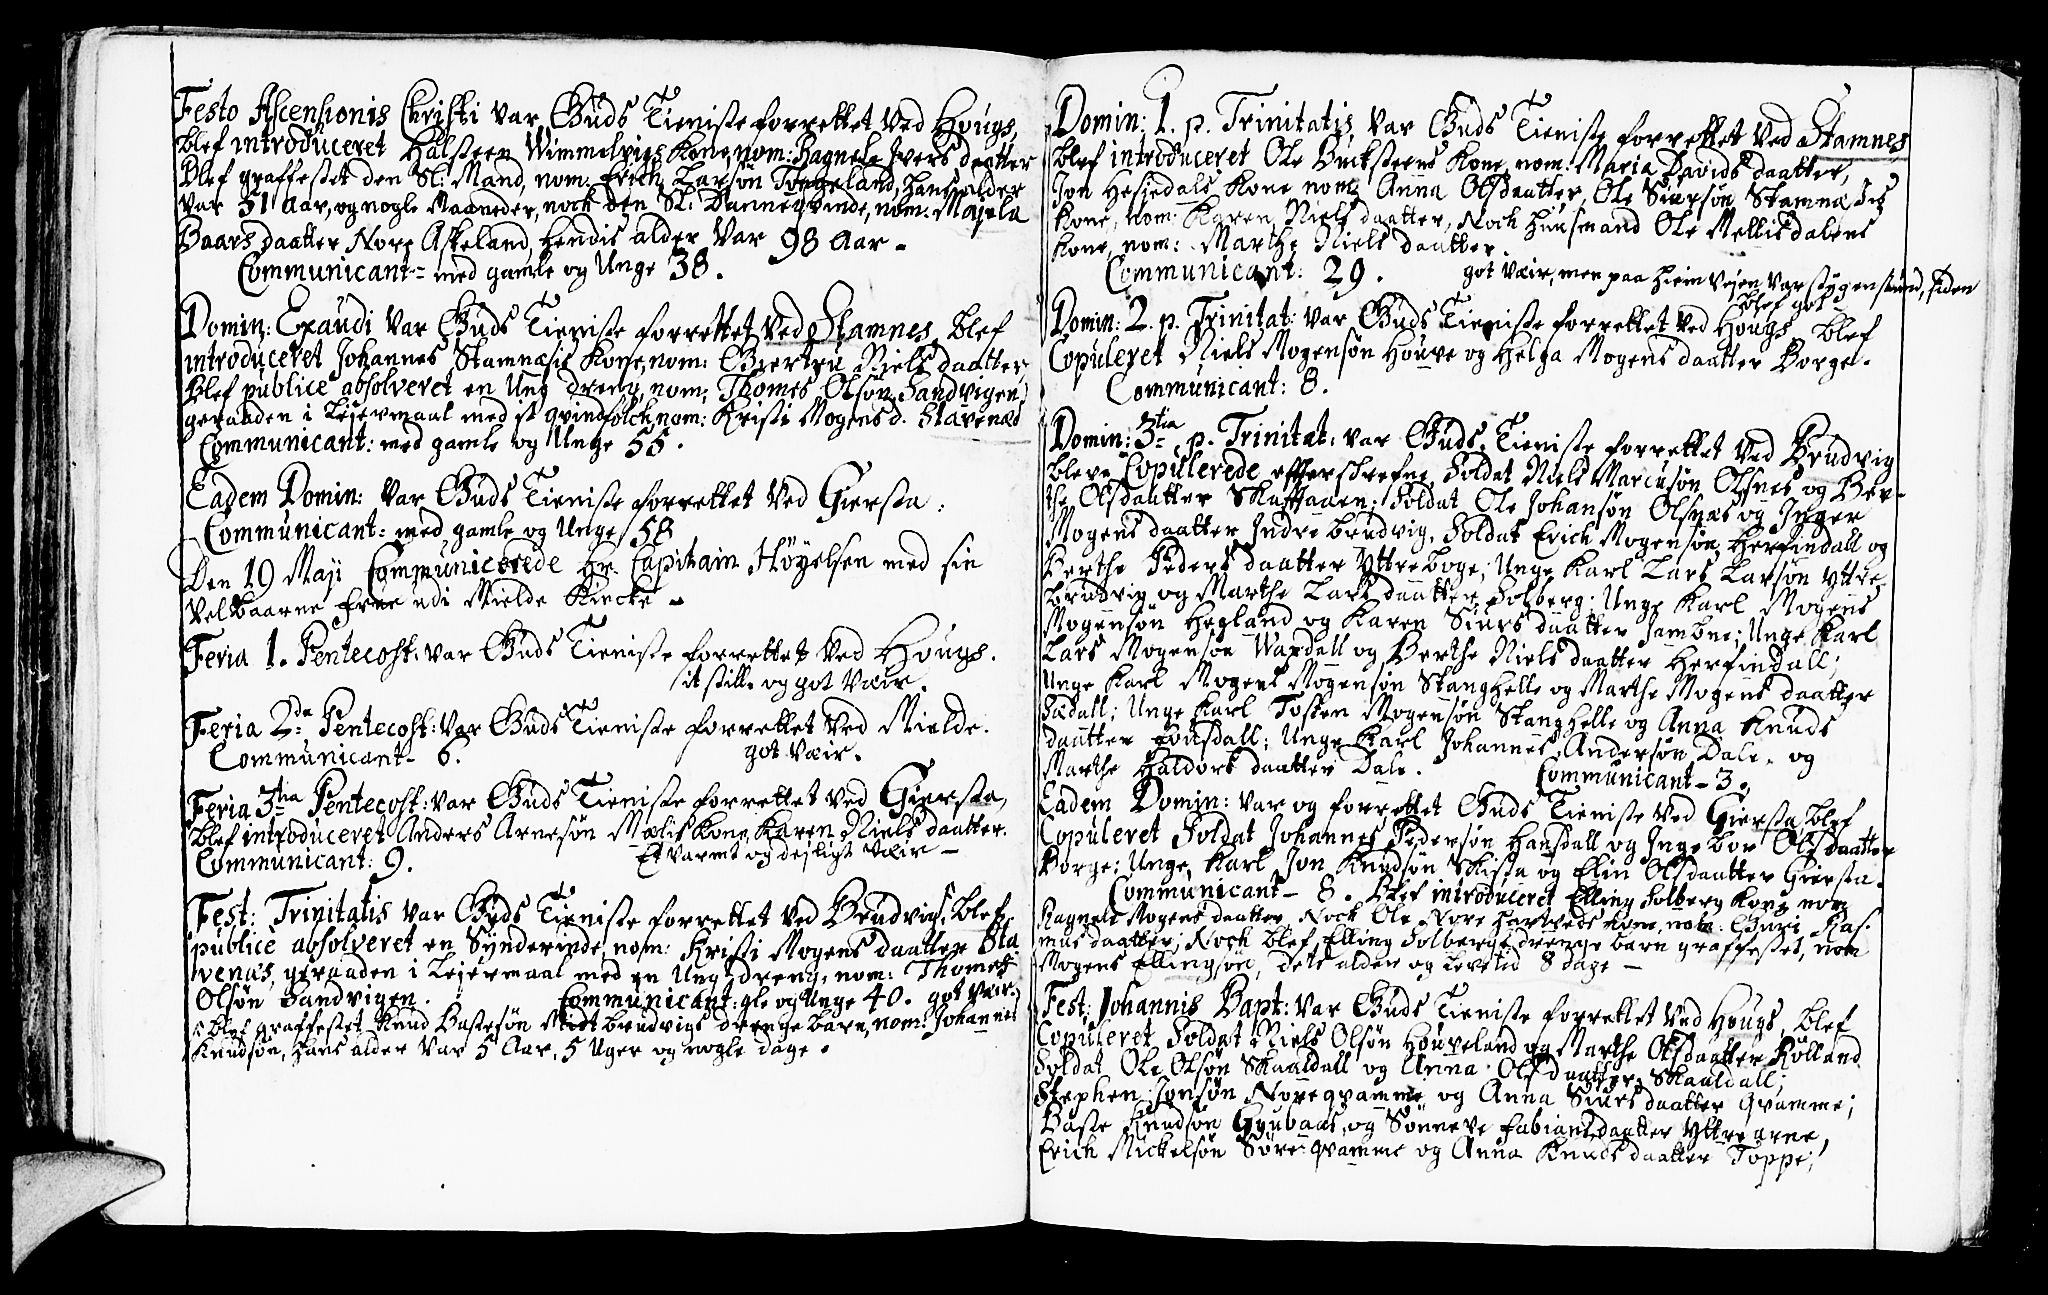 Festo Ascensionis Christi var Guds Tieniste forrettet ved Hougs,
blef introduceret Halsteen Wimmelvigs Kone, nom: Ragnela Ivers daatter
Blef graffestet den Sl: Mand, nom: Erich Larsön Tungeland, hans alder
var 51 Aar, og nogle Maaneder, nock den Sl: Danneqvinde, nom: Magela
Baars daatter Nore Askeland, hendis alder var 98 Aar -
Communicant: med gamle og Unge 38.
Domin: Exaudi var Guds Tieniste forrettet ved Stamnes, blef
introduceret Johannes Stamnæsis Kone, nom: Giertru Niels daatter,
Blef publicè absolveret en Ung dreng, nom: Thomes Olsön Sandvigen
geraaden i Lejermaal med it qvindfolck, nom: Kristi Mogens d. Stavenæs
Communicant: med gamle og Unge 55.
Eadem Domin: var Guds Tieniste forrettet ved Giersta.
Communicant: med gamle og Unge 58
Den 19 Maji Communicerede Hr. Capitain Höyelsen med sin
Velbaarne Frue udi Mielde Kircke -
Feria 1. Pentecost: var Guds Tieniste forrettet ved Hougs.
it still. og got Vær.
Feria 2da Pentecost: var Guds Tieniste forrettet ved Mielde.
Communicant - 6. got Vær.
Feria 3tia Pentecost: var Guds Tieniste forrettet ved Giersta,
blef introduceret Anders Arnesön Mælis Kone, Karen Niels daatter.
Communicant: 9. Et varmt og dejligt Vær -
Fest: Trinitatis var Guds Tieniste forrettet ved Brudvig, blef
publicè absolveret en Synderinde, nom: Kristi Mogens daatter Sta
venæs, geraaden i Lejermaal med en Ung dreng, nom: Thomes
Olsön Sandvigen. Communicant: gle og Unge 40. got Vær.
blef graffestet Knud Bastesön Midt brudvigs drenge barn, nom: Johannes
Knudsön, hans alder var 5 Aar, 5 Uger og nogle dage.
Domin: 1. p. Trinitatis, var Guds Tieniste forrettet ved Stamnes,
blef introduceret Ole Bucksteens Kone, nom: Maria Davids daatter,
Jon Hesjedals Kone nom: Anna Olsdaatter, Ole Siursön Stamnæs
Kone, nom: Karen Niels daatter, Noch huusmand Ole Mellisdalens
Kone, nom: Marthe Niels daatter.
Communicant: 29. got Vær, men paa hiem Vejen var stygen stund, siden
blef got
Domin: 2. p. Trinitat: var Guds Tieniste forrettet ved Hougs, blef
Copuleret Niels Mogensön Houve og Helga Mogens daatter Borge.
Communicant: 8.
Domin: 3tia p. Trinitat: var Guds Tieniste forrettet ved Brudvig
bleve Copulerede effterskrefne, Soldat Niels Marcusön Olsnes og Ber-
the Olsdaatter Skafftaaen; Soldat Ole Johansön Olsnæs og Inger
Mogens daatter Indre brudvig, Soldat Erich Mogensön Herfindall og
Berthe Peders daatter Yttre boge; Unge Karl Lars Larsön Yttre
brudvig og Marthe Lars daatter Solberg; Unge Karl Mogens
Mogensön Hegland og Karen Siurs daatter Jambne; Unge Karl
Lars Mogensön Waxdall og Berthe Niels daatter Herfindall;
Unge Karl Mogens Mogensön Stanghelle og Marthe Mogens daatter
Sædall; Unge Karl Tosten Mogensön Stanghelle og Anna Knuds
daatter dall; Unge Karl Johannes Andersön Dale, og
Marthe Haldors daatter Dale. Communicant - 3.
Eadem Domin: var og forrettet Guds Tieniste ved Giersta, blef
Copuleret Soldat Johannes Pedersön Hansdall og Ingebor Olsdaatter
Borge; Unge Karl Jon Knudsön Skista og Elin Olsdaatter Giersta.
Communicant - 8. Blef introduceret Elling Solberg Kone, nom
Ragnele Mogens daatter, Nock Ole Nore Hartveds Kone, nom: Guri Ras-
mus daatter; Noch blef Elling Solbergs drenge barn graffestet, nom
Mogens Ellingsön, dets alder og Levetid 8 dage -
Fest: Johannis Bapt: var Guds Tieniste forrettet ved Hougs, blef
Copuleret Soldat Niels Olsön Houveland og Marthe Olsdaatter Rölland.
Soldat Ole Olsön Skaaldall og Anna Olsdaatter Skaaldall;
Stephen Jonsön Noreqvamme og Anna Siurs daatter Qvamme;
Baste Knudsön Gyubaas, og Sönneve Fabians daatter Yttre arne,
Erich Mickelsön Söre qvamme og Anna Knuds daatter Toppe;